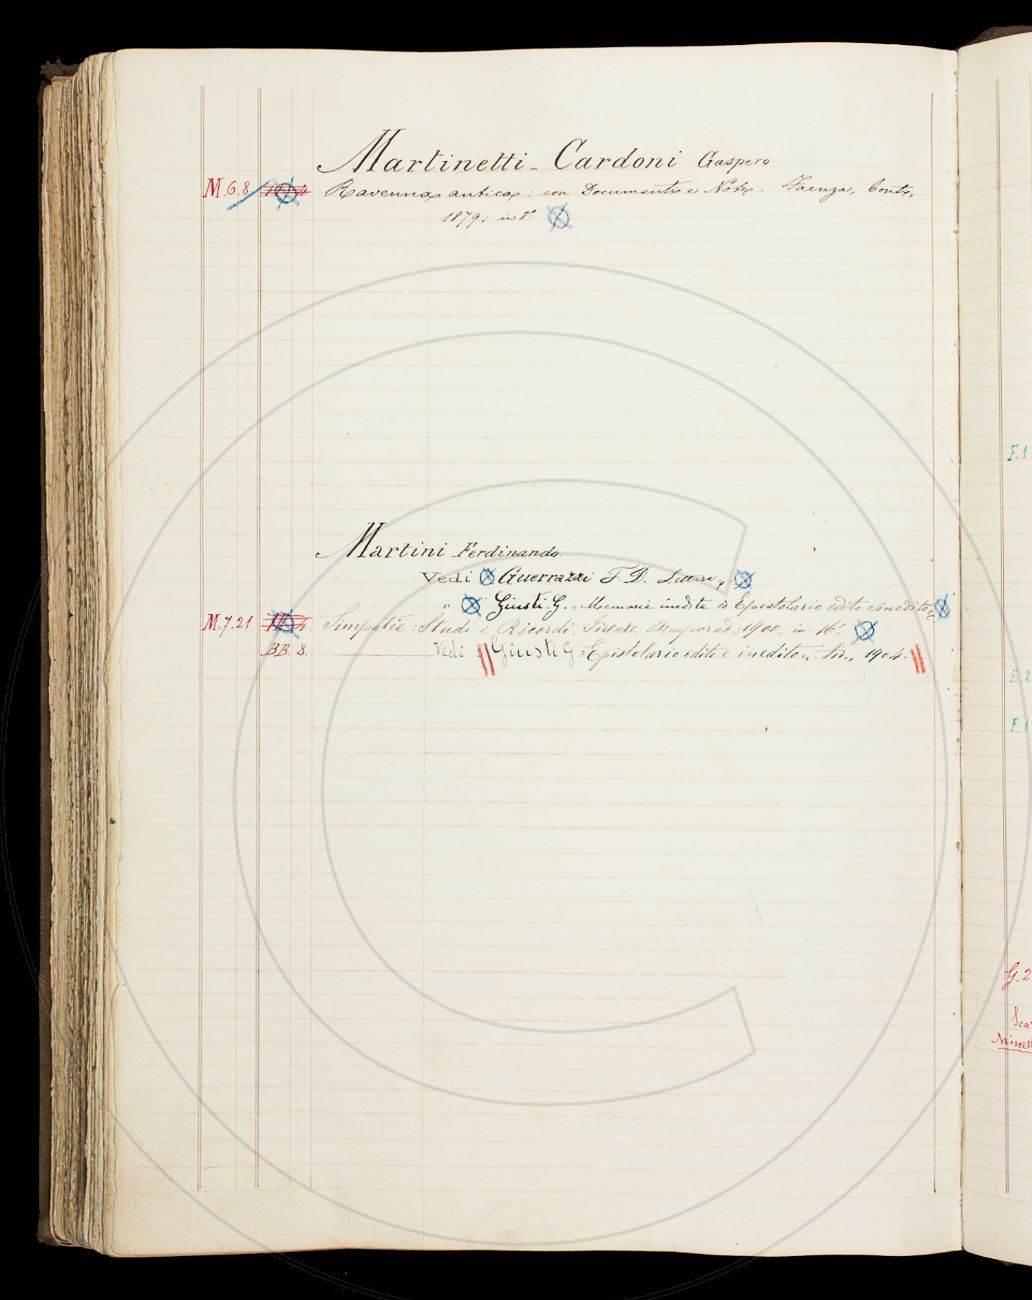 Martinetti - Cardoni Gaspero
M.6.8 Ravenna antica; con Documenti e Note. Faenza, Conti,
1879; in 8°
Martini Ferdinando
Vedi Guerrazzi F. D. Lettere
" Giusti G. Memorie inedite Epistolario edito e inedito
M.7.21 Simpatie: Studi e Ricordi. Firenze, Bemporad, 1900, in 16°
BB. 8. Vedi Giusti G. Epistolario edito e inedito Fir., 1904.
F.1
E.2
F.1
G.2